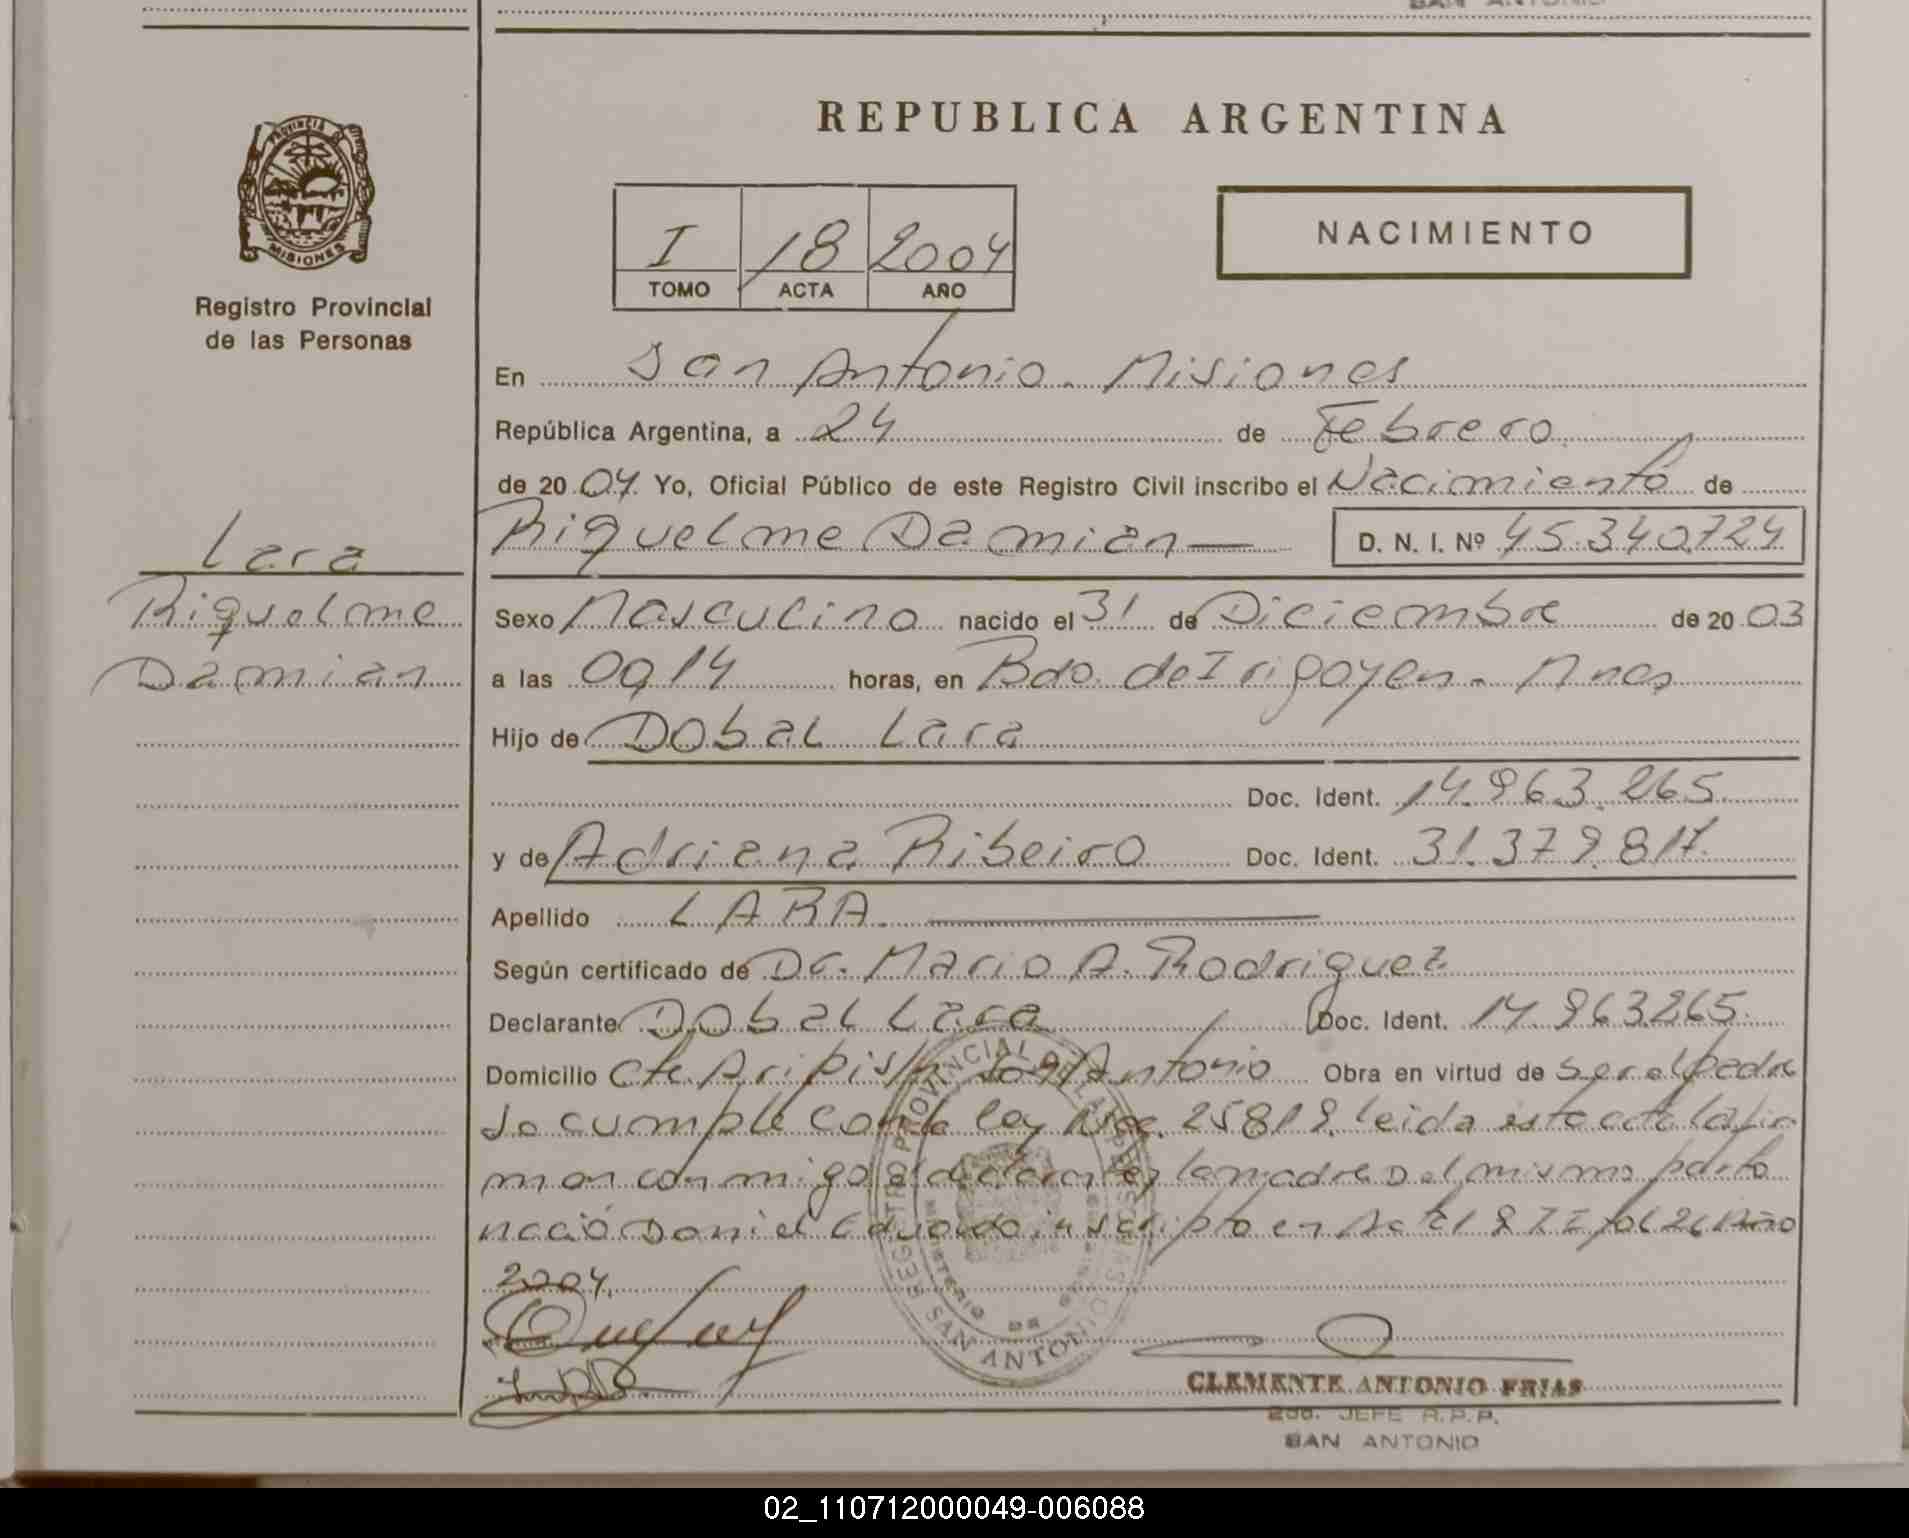 SAN ANTONIO
PROVINCIA DE
MISIONES
Registro Provincial
de las Personas
Lara
Riquelme
Damian
REPUBLICA ARGENTINA
I 18 2004
TOMO ACTA AÑO
NACIMIENTO
En San Antonio. Misiones
República Argentina, a 24 de Febrero
de 2004 Yo, Oficial Público de este Registro Civil inscribo el Nacimiento de
Riquelme Damian D. N. I. Nº 45.340.724
Sexo Masculino nacido el 31 de Diciembre de 2003
a las 00,14 horas, en Bdo. de Irigoyen - Mnes
Hijo de Dobal Lara
Doc. Ident. 14.963.265
y de Adriana Ribeiro Doc. Ident. 31.379.817.
Apellido LARA.
Según certificado de Dr. Mario A. Rodriguez
Declarante Dobal Lara Doc. Ident. 14.963265.
Domicilio Cte. Aripi s/n San Antonio Obra en virtud de ser el padre
se cumple con la ley 25819. leida esta acta la fir
man conmigo el declarante y la madre Del mismo parto
nació Daniel Eduardo, inscripto en Acta Año
2004.
REGISTRO PROVINCIAL DE LAS PERSONAS
MINISTERIO DE
SAN ANTONIO
CLEMENTE ANTONIO FRIAS
JEFE R.P.P.
SAN ANTONIO
02_110712000049-006088